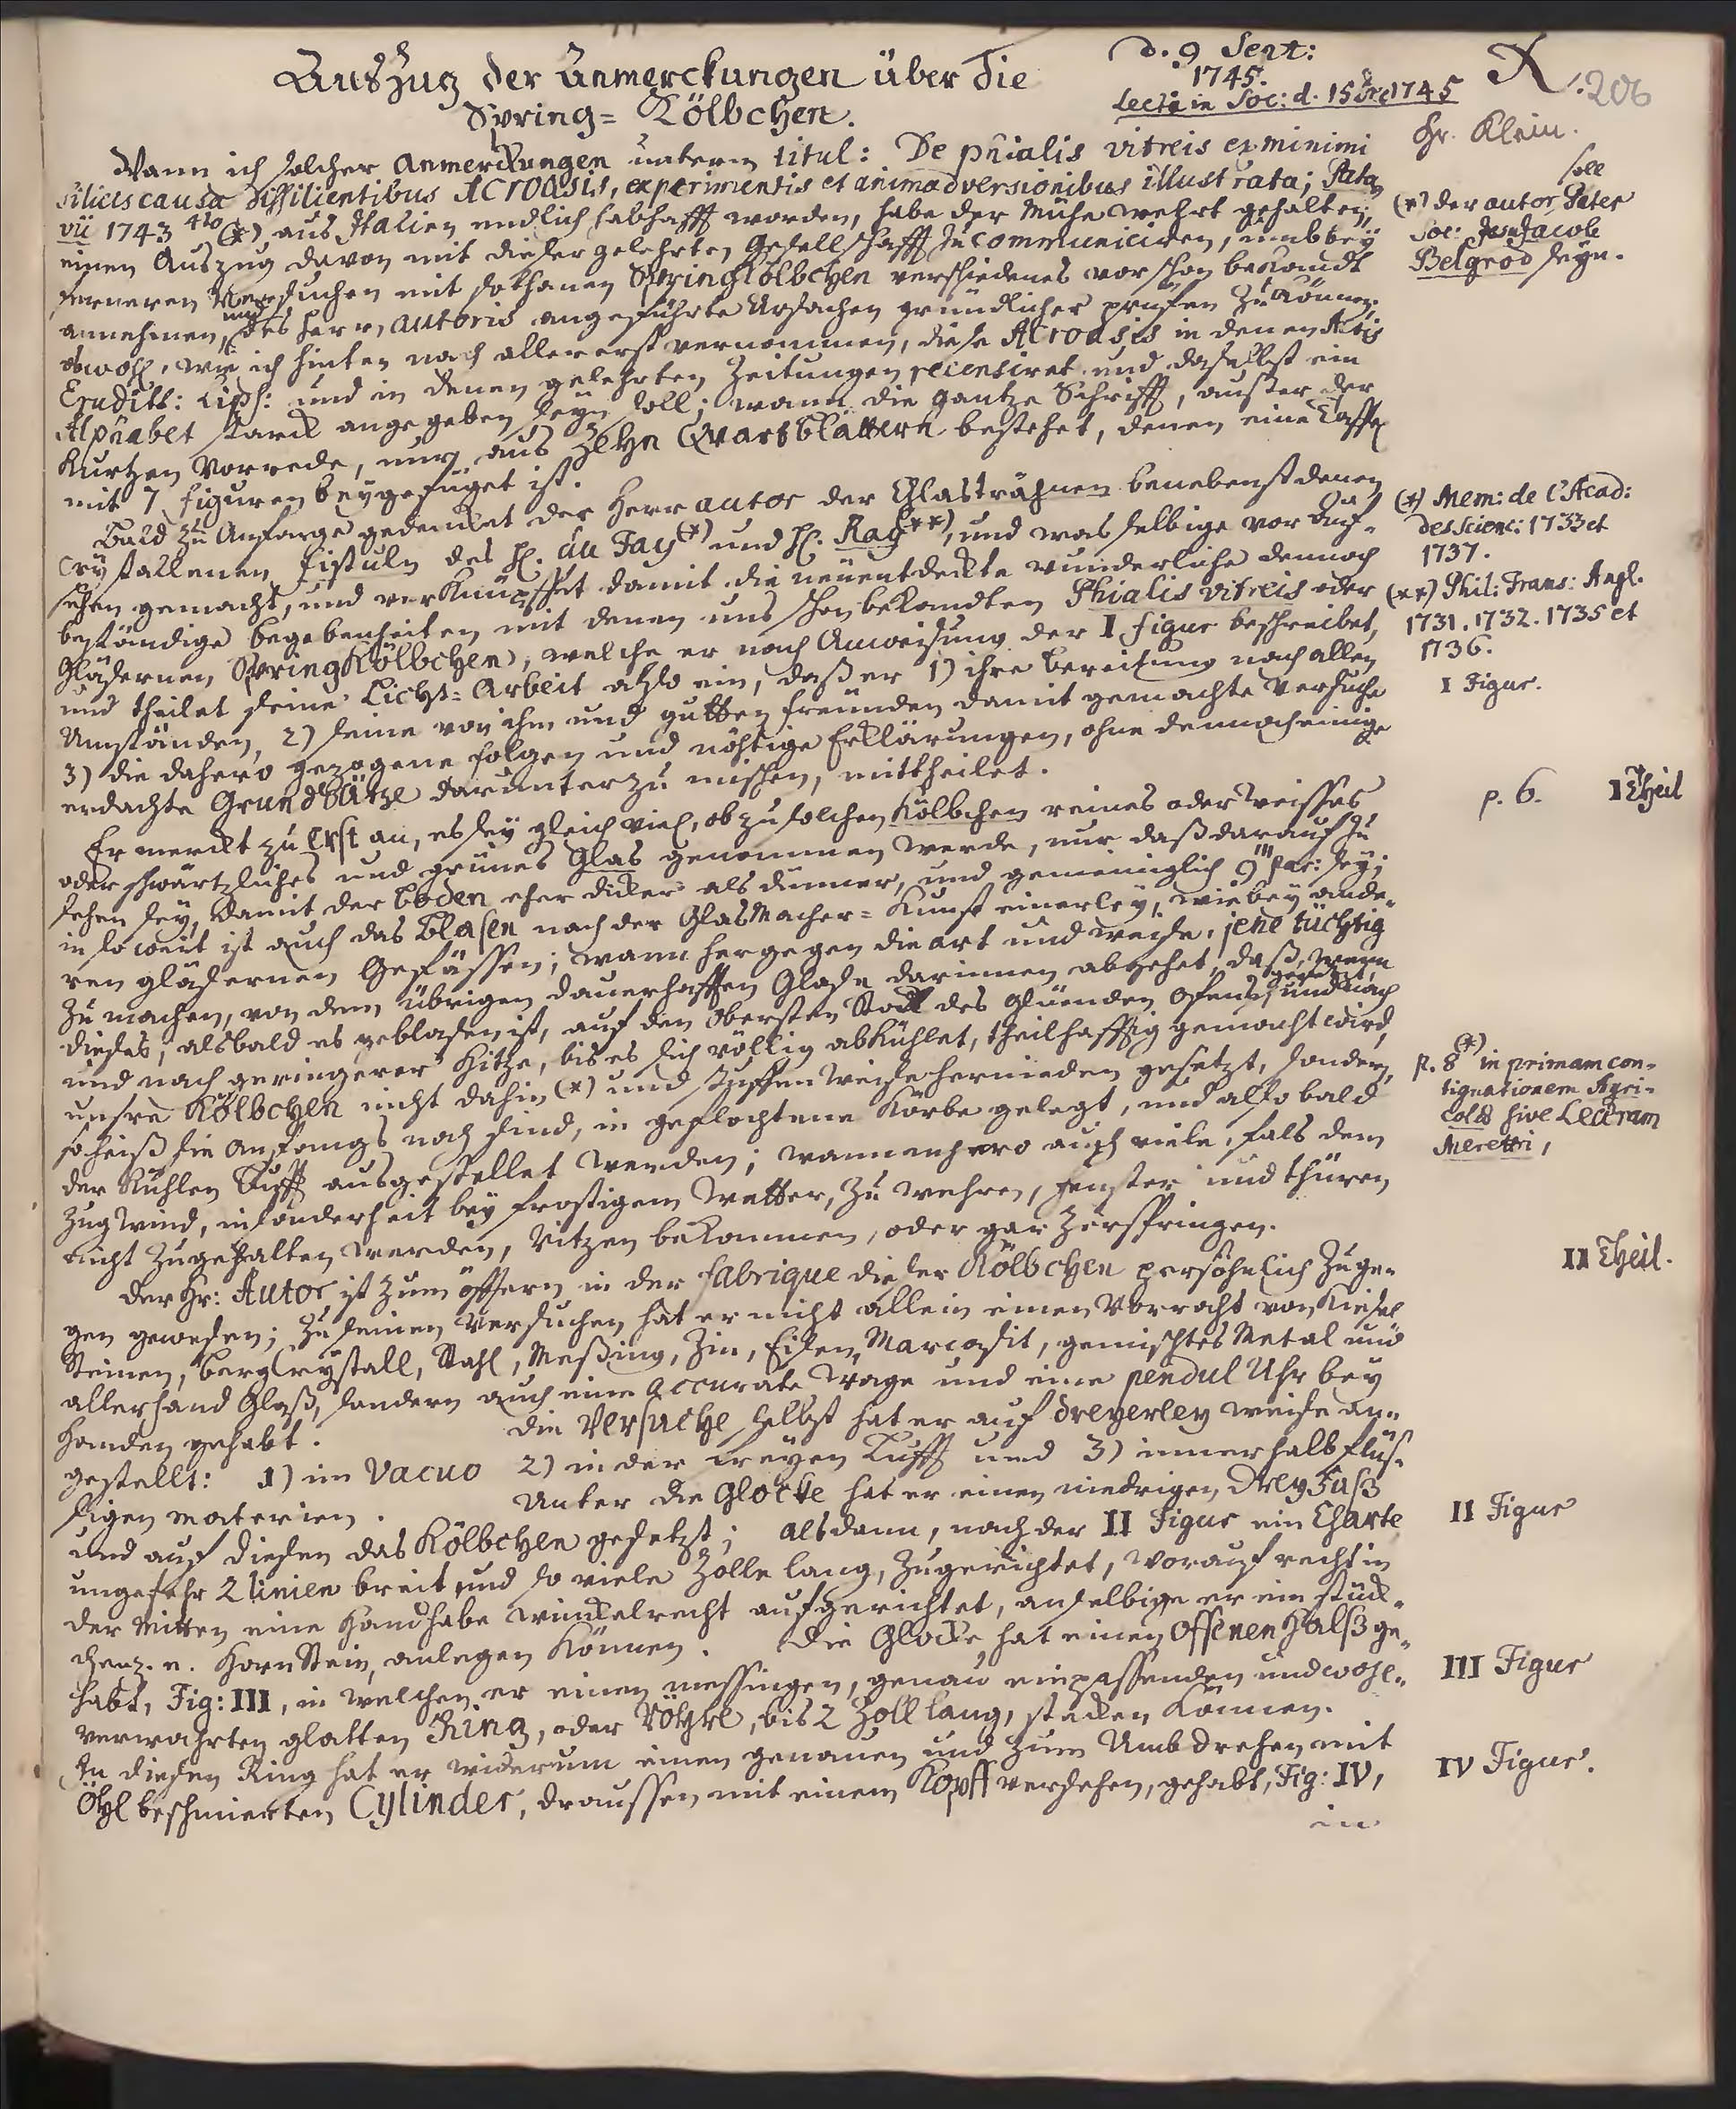 Auszug der Anmerckungen über die
Spring= Kölbchen.
d. 9 Sept:
1745.
Lect: in Soc: d. 15 Dec 1745
A.
206
Hr. Klein.
Wann ich solcher Anmerckungen unterm titul: De phialis vitreis ex minimi
silicis causa dissilientibus Acroasis, experimentis et animadversionibus illustrata; Pata
vii 1743 4to (*) aus Italien endlich habhafft worden, habe der Mühe wehrt gehalten,
einen Auszug davon mit dieser gelehrten Gesellschafft zu communiciren, umb bey
ferneren Versuchen mit sothanen Springkölbchen verschiedenes vor schon bekandt
annehmen, und des Herrn autoris angeführte Ursachen gründlicher prüfen zu können;
obwohl, wie ich hinten nach allererst vernommen, diese Acroasis in denen Actis
Erudits: Lips: und in denen gelehrten Zeitungen recensiret und daselbst ein
Alphabet starck angegeben seyn soll; wann die gantze Schrifft, ausser der
kurtzen Vorrede, nur aus zehn Quartblättern bestehet, denen eine Taffel
mit 7 figuren beygefüget ist.
(*) der autor soll Pater
Soc: Jesu Jacob
Belgrod seyn.
Bald zu Anfange gedencket der Herr autor der Glasträhnen benebenst denen
crystallenen fistuln des H. du Fay (*) und H. Ray **), und was selbige vor Auf-
sehen gemacht, und verknüpffet damit die neuentdeckte wunderliche dennoch
beständige begebenheiten mit denen uns schon bekandten Phialis vitreis oder
Gläsernen Springkölbchen, welche er nach Anweisung der I figur beschreibet,
und theilet seine Licht= Arbeit also ein, daß er 1) ihre bereitung nach allen
Umständen, 2) seine von ihm und gutten freunden damit gemachte Versuche
3) die dahero gezogene folgen und nöhtige Erklärungen, ohne dennoch einige
erdachte Grundsätze darunter zu mischen, mittheilet.
(*) Mem: de l'Acad:
des Scienc: 1733 et
1737.
(**) Phil: Trans: Angl.
1731. 1732. 1735 et
1736.
I Figur.
Er merckt zu Erst an, es sey gleich viel, ob zu solchen Kölbchen reines oder weisses
oder schwärtzliches und grünes Glas genommen werde, nur daß darauf zu
sehen sey, damit der boden eher dicker als dünner, und gemeiniglich 9''' par: sey;
in so weit ist auch das Blasen nach der GlasMacher= Kunst einerley, wie bey ande-
ren gläsernen Gefässen; wann hergegen die art und weise, jene tüchtig
zu machen, von dem übrigen dauerhafften Glase darinnen abgehet, daß, wenn
dieses, alsbald es geblasen ist, auf den obersten Stock des glüenden ofens gesetzt, und nach
und nach geringerer Hitze, bis es sich völlig abkühlet, theilhafftig gemacht wird,
unsre Kölbchen nicht dahin (*) und stuffenweise hernieden gesetzt, sondern,
so heiß sie Anfangs noch sind, in geflochtene Körbe gelegt, und also bald
der kühlen Lufft ausgestellet werden; wannenhero auch viele, fals dem
Zugwind, insonderheit bey frostigem Wetter, zu wehren, fenster und thüren
nicht zugehalten werden, Ritzen bekommen, oder gar zerspringen.
p. 6.
I Theil
p. 8 (*) in primam con-
tignationem
sive Lectram
Meretri,
Der Hr: Autor ist zum öfftern in der fabrique dieser Kölbchen persöhnlich zuge-
gen gewesen; zu seinen Versuchen hat er nicht allein einen Vorraht von Kiesel
Steinen, bergCrystall, Stahl, Meßing, Zin, Eisen, Marcasit, gemischtes Metal und
allerhand Glaß, sondern auch eine accurate Wage und eine pendul Uhr bey
Handen gehabt. Die Versuche selbst hat er auf dreyerley weise an-
gestellt: 1) im Vacuo 2) in der freyen Lufft und 3) innerhalb flüs-
sigen materien. Unter die Glocke hat er einen niedrigen Dreyfuß
und auf diesen das Kölbchen gesetzt; alsdann, nach der II Figur ein Charte
ungefehr 2 linien breit und so viele Zolle lang, zugerichtet, worauf recht in
der Mitten eine Handhabe winckelrecht aufgerichtet, an selbige er ein stück-
chen z. e. HornStein, anlegen können. Die Glocke hat einen offenen Halß ge-
habt, Fig: III, in welchen er einen messingen, genau einpassenden und wohl-
verwahrten glatten Ring, oder Röhre, bis 2 Zoll lang, stecken können.
In diesen Ring hat er widerum einen genauen und zum Umbdrehen mit
Öhl beschmierten Cylinder, draussen mit einem Kopff versehen, gehabt, Fig: IV,
in
II Theil.
II Figur
III Figur
IV Figur.